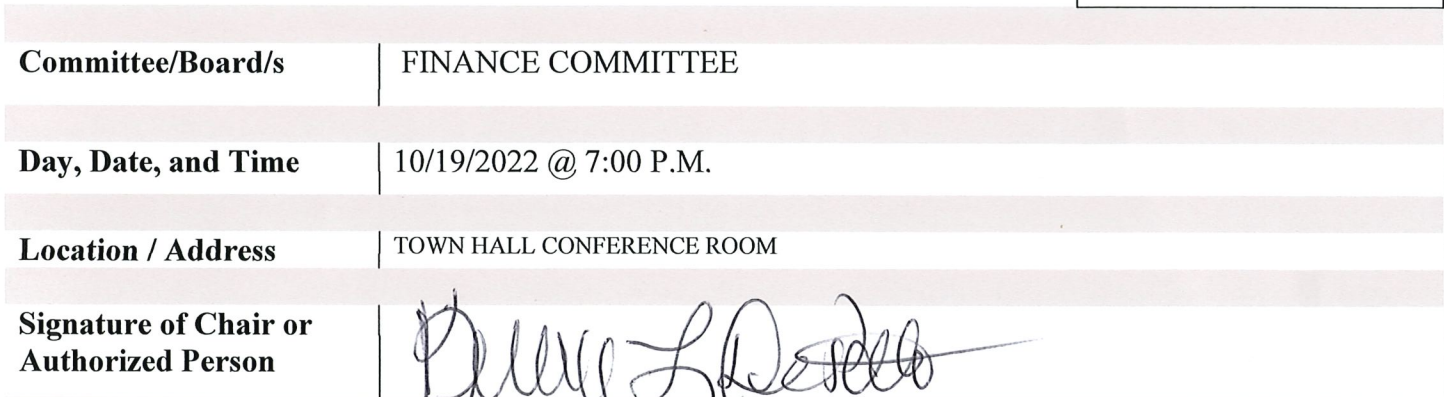 Committee/Board/s FINANCE COMMITTEE
Day, Date, and Time 10/19/2022 @ 7:00 P.M.
Location / Address TOWN HALL CONFERENCE ROOM
Signature of Chair or
Authorized Person